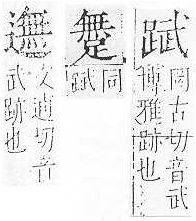 䟼
罔古切音武
博雅跡也
同
䟼
文逋切音
武跡也